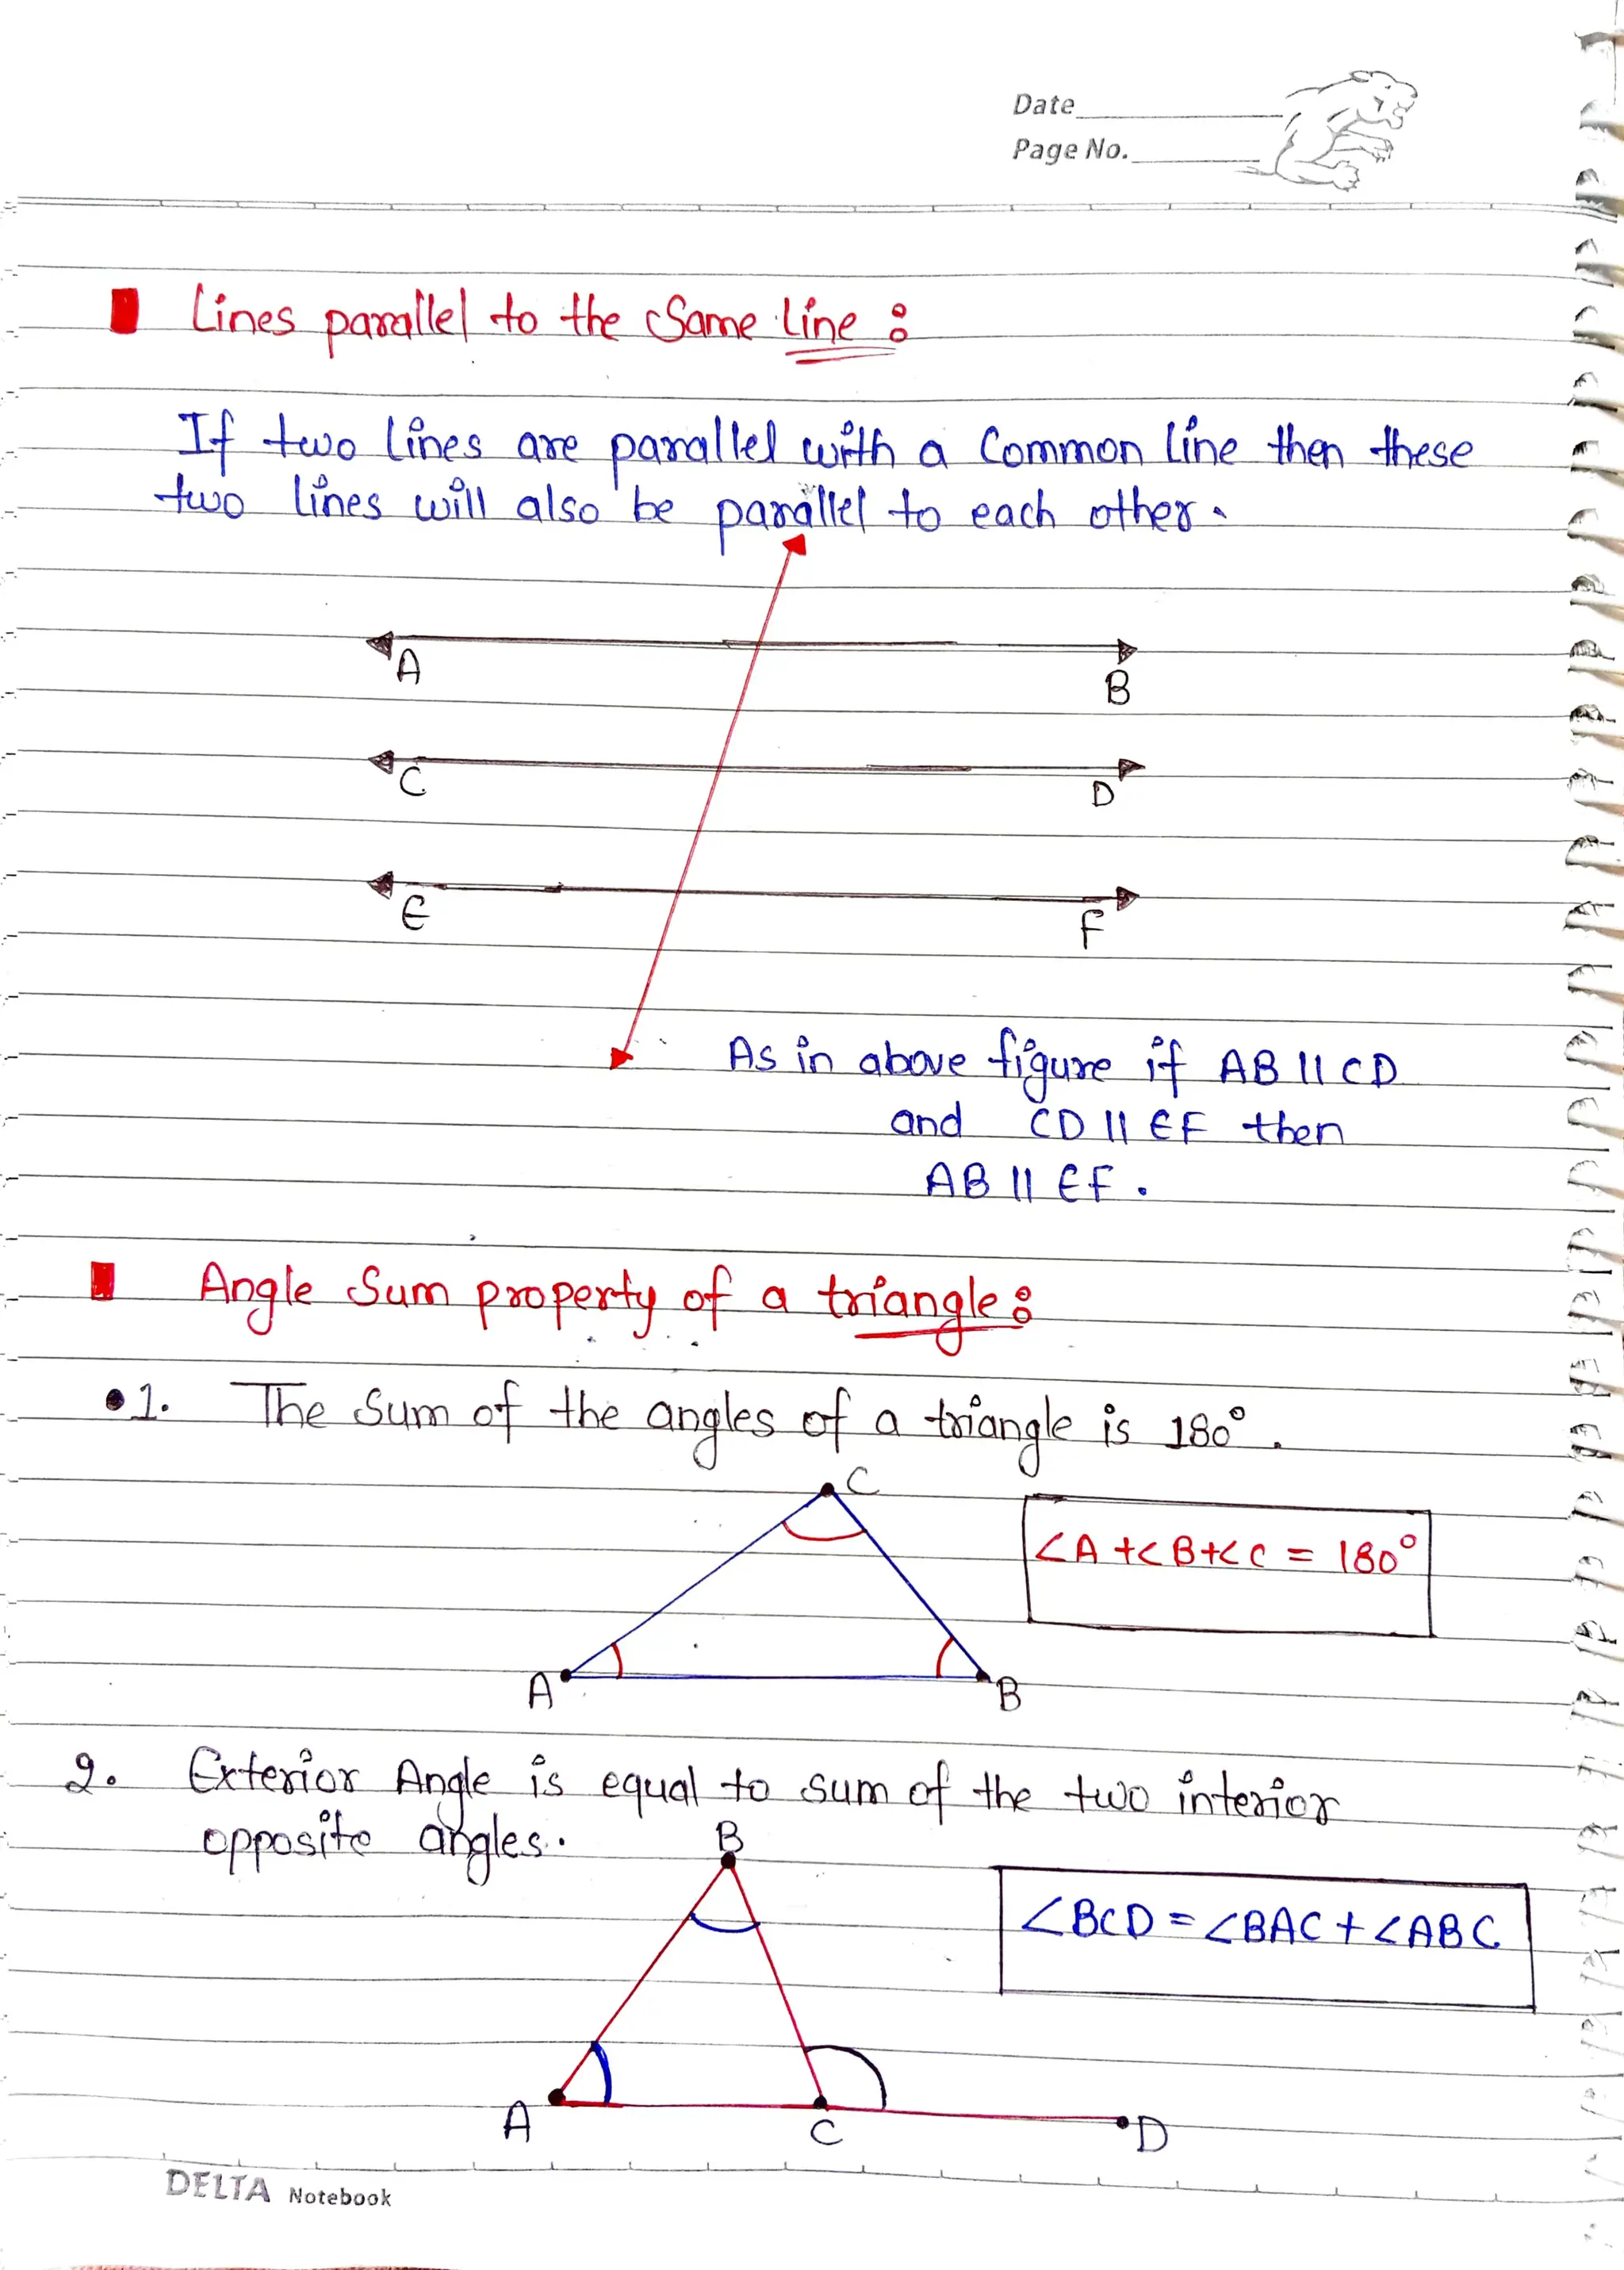 Date
Page No.
Lines parallel to the Same Line :
If two lines are parallel with a Common line then these
two lines will also be parallel to each other.
A
B
C
D
E
F
As in above figure if AB || CD
and CD || EF then
AB || EF.
Angle Sum property of a triangle :
•1. The Sum of the angles of a triangle is 180°.
C
∠A +∠B+∠C = 180°
A
B
2. Exterior Angle is equal to sum of the two interior
opposite angles.
B
∠BCD = ∠BAC + ∠ABC
A
C
D
DELTA Notebook